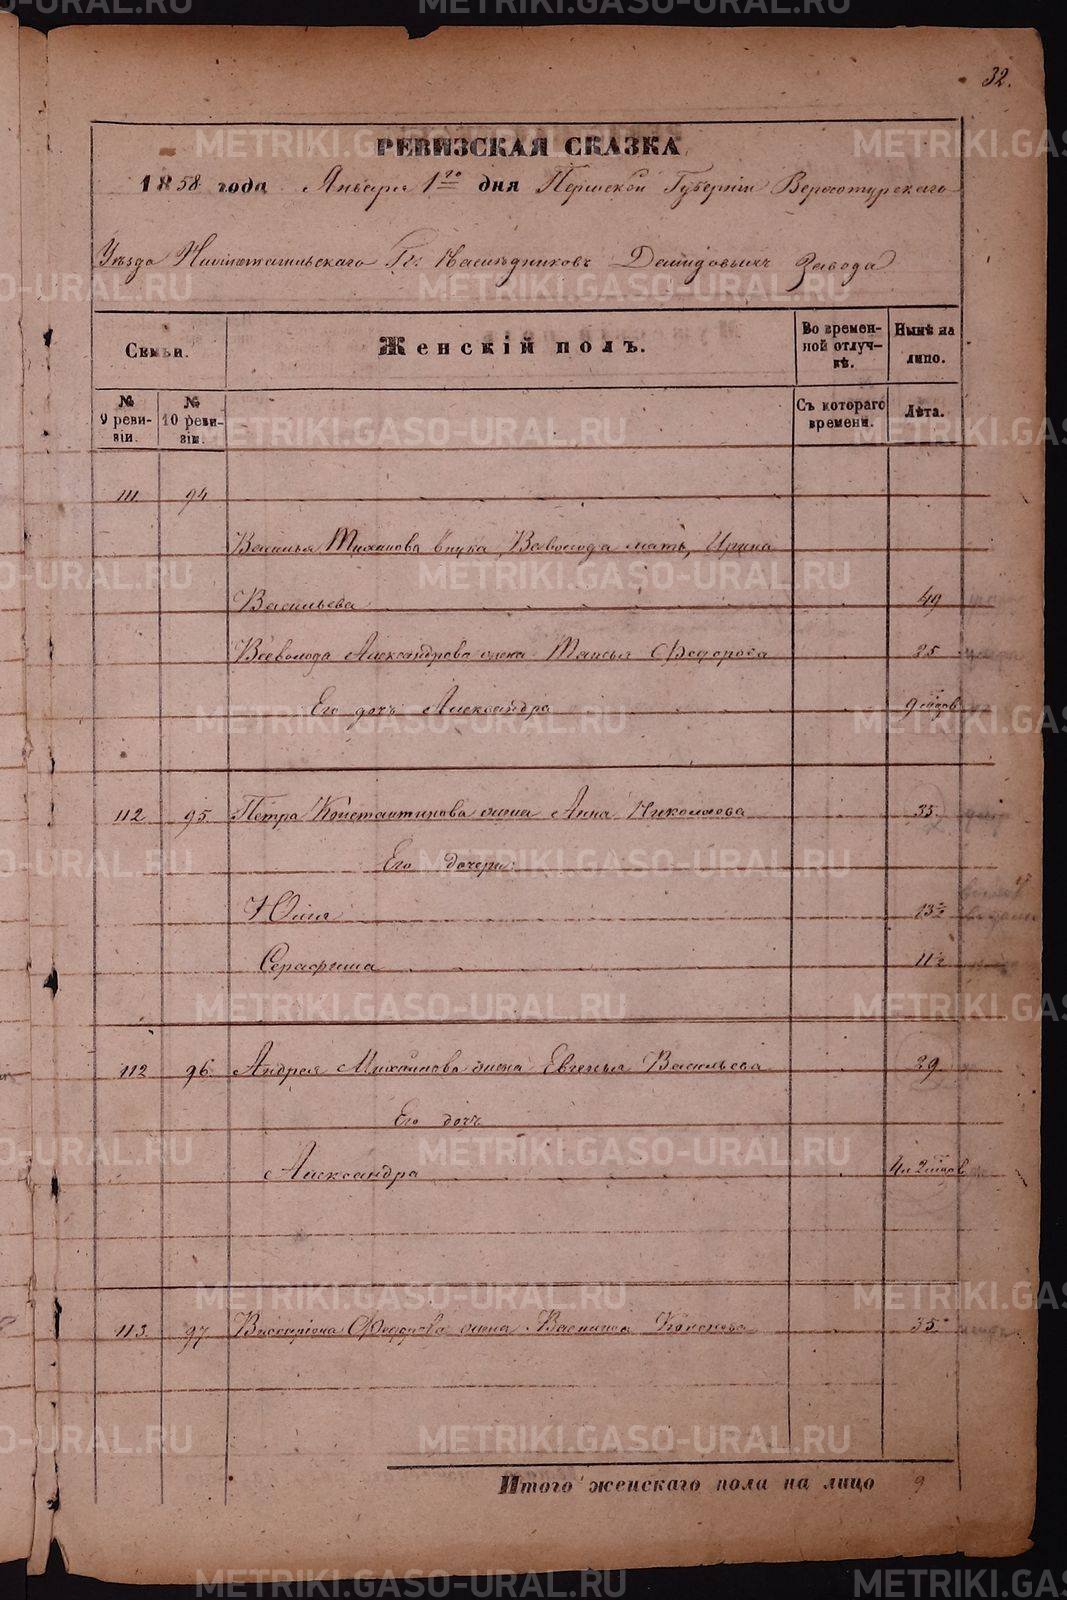 32.
РЕВИЗСКАЯ СКАЗКА
1858 года Января 1го дня Пермской Губерніи Верхотурскаго
Уѣзда Нижнетагильскаго Гг. Наслѣдниковъ Демидовыхъ Завода
Семьи.
Женскій полъ.
Во времен-
ной отлуч-
кѣ.
Нынѣ на
лицо.
№
9 реви-
зіи.
№
10 реви-
зіи.
Съ котораго
времени.
Лѣта.
111 94
внука, Всеволода мать, Ирина
Васильева 49
Всеволода Александрова жена Таисья Федорова 25
Его дочь Александра 9 мѣсяцов
112 95. Петра Константинова жена Анна Николаева 35
Его дочери:
Юлія 13½
Серафима 11½
112 96. Андрея Михайлова жена Евгенья Васильева 29
Его дочь
Александра 4 л 2 мѣсяцов
113. 97. Висаріона Федорова жена 35
Итого женскаго пола на лицо 9
METRIKI.GASO-URAL.RU